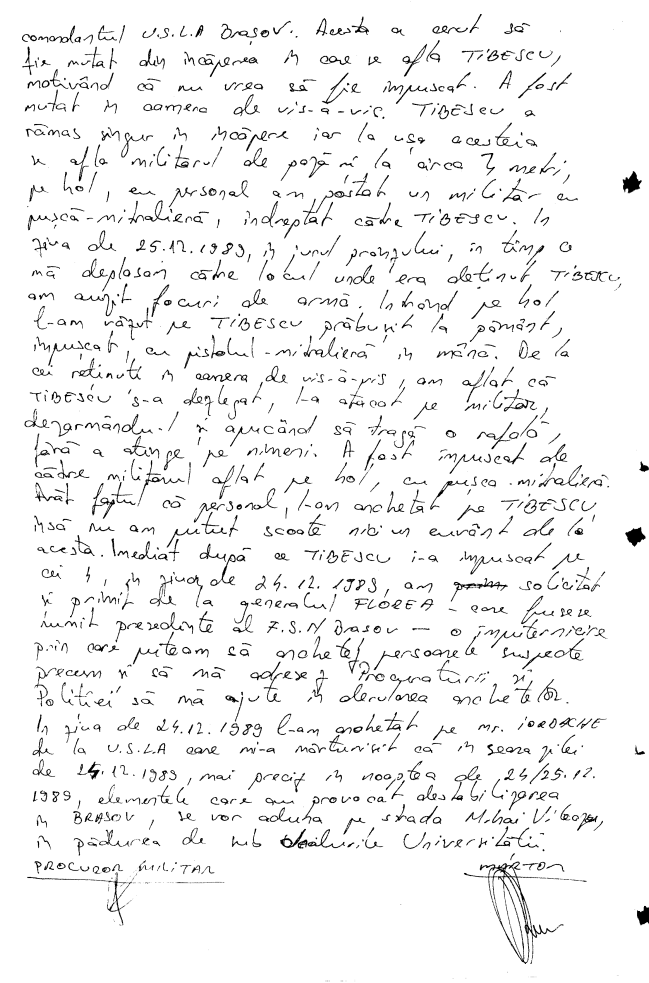 comandantul U.S.L.A Brașov. Acesta a cerut să
fie mutat din încăperea în care se afla TIBESCU,
motivând că nu vrea să fie împușcat. A fost
mutat în camera de vis-à-vis. TIBESCU a
rămas singur în încăpere iar la ușa acesteia
se afla militarul de pază și la circa 7 metri,
pe hol, eu personal am postat un militar cu
pușcă-mitralieră, îndreptat către TIBESCU. În
ziua de 25.12.1989, în jurul prânzului, în timp ce
mă deplasam către locul unde era deținut TIBESCU,
am auzit focuri de armă. Intrând pe hol
l-am văzut pe TIBESCU prăbușit la pământ,
împușcat, cu pistolul-mitralieră în mână. De la
cei reținuți în camera de vis-à-vis, am aflat că
TIBESCU s-a dezlegat, l-a atacat pe militar,
dezarmându-l și apucând să tragă o rafală,
fără a atinge pe nimeni. A fost împușcat de
către militarul aflat pe hol, cu pușca-mitralieră.
Arăt faptul că personal, l-am anchetat pe TIBESCU,
însă nu am putut scoate nici un cuvânt de la
acesta. Imediat după ce TIBESCU i-a împușcat pe
cei 4, în ziua de 24.12.1989, am solicitat
și primit de la generalul FLOREA - care fusese
numit președinte al F.S.N Brașov - o împuternicire
prin care puteam să anchetez persoanele suspecte
precum și să mă adresez Procuraturii și
Poliției să mă ajute în derularea anchetelor.
În ziua de 24.12.1989 l-am anchetat pe mr. IORDACHE
de la U.S.L.A care mi-a mărturisit că în seara zilei
de 24.12.1989, mai precis în noaptea de 24/25.12.
1989, elementele care au provocat destabilizarea
în BRAȘOV, se vor aduna pe strada Mihai Viteazu,
în pădurea de sub dealurile Universității.
PROCUROR MILITAR MÁRTON